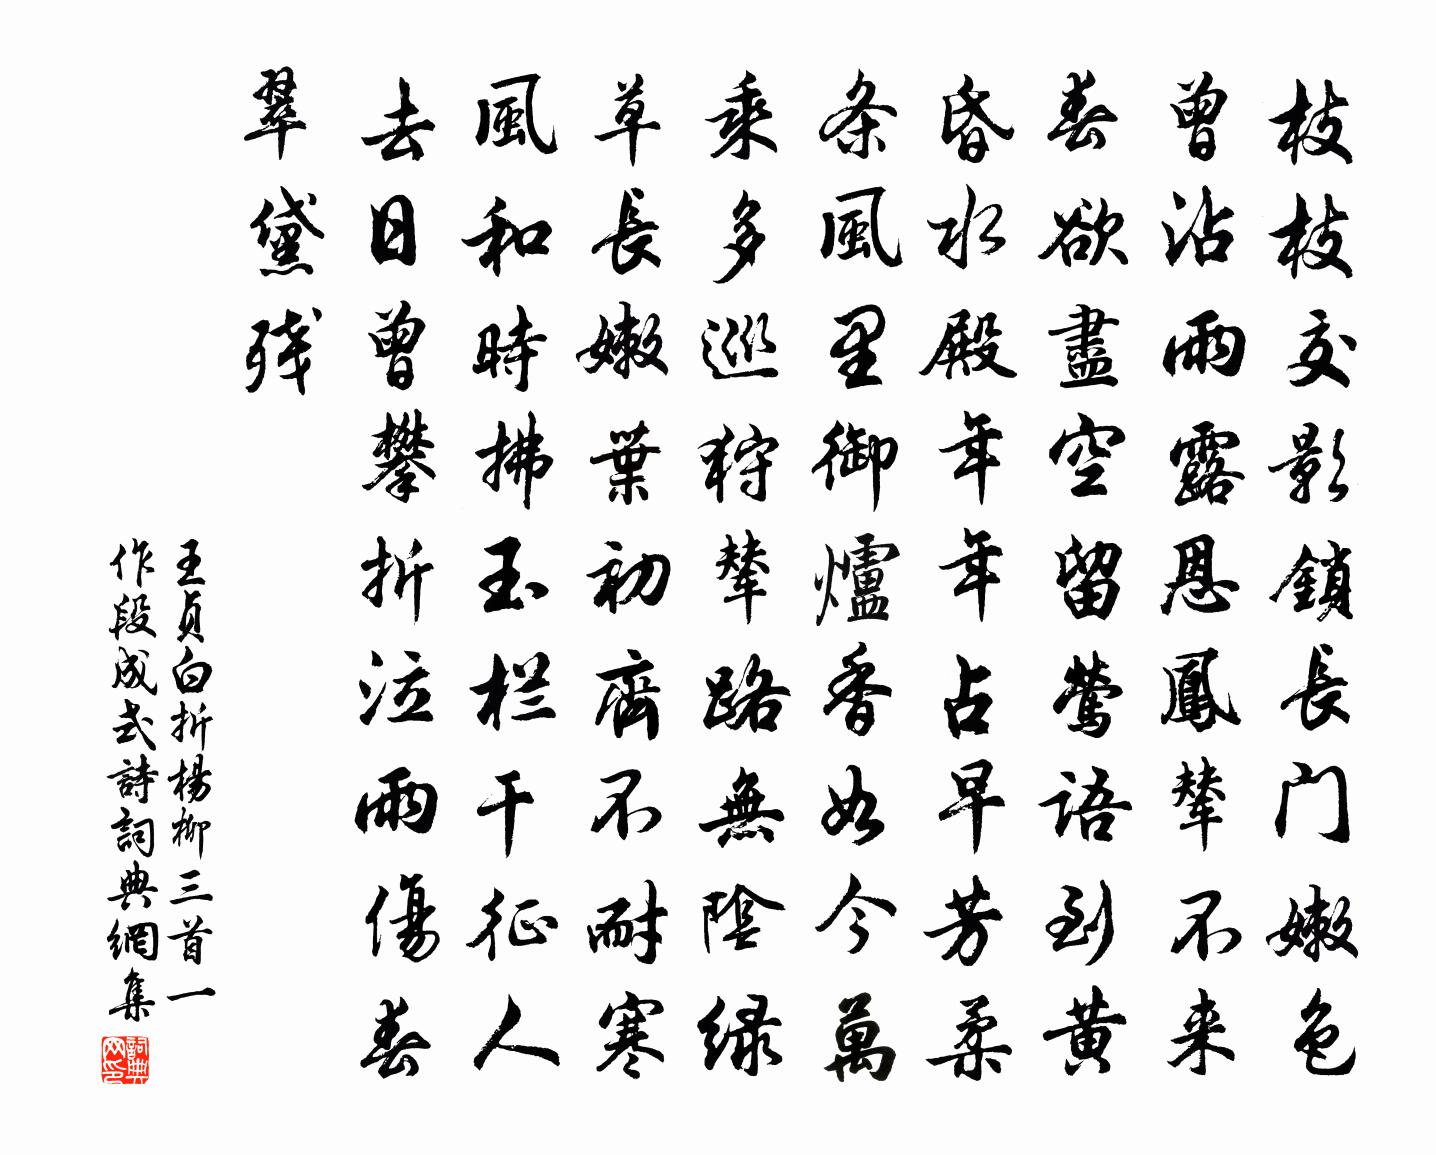 枝枝交影鎖長門嫩色
曾沾雨露恩鳳輦不来
春欲盡空留鶯語到黄
昏水殿年年占早芳柔
条風里御爐香如今萬
乘多巡狩輦路無陰緑
草長嫩葉初齊不耐寒
風和時拂玉栏干征人
去日曾攀折泣雨傷春
翠黛残
王貞白折楊柳三首一
作段成式詩詞典網集
詞典网印